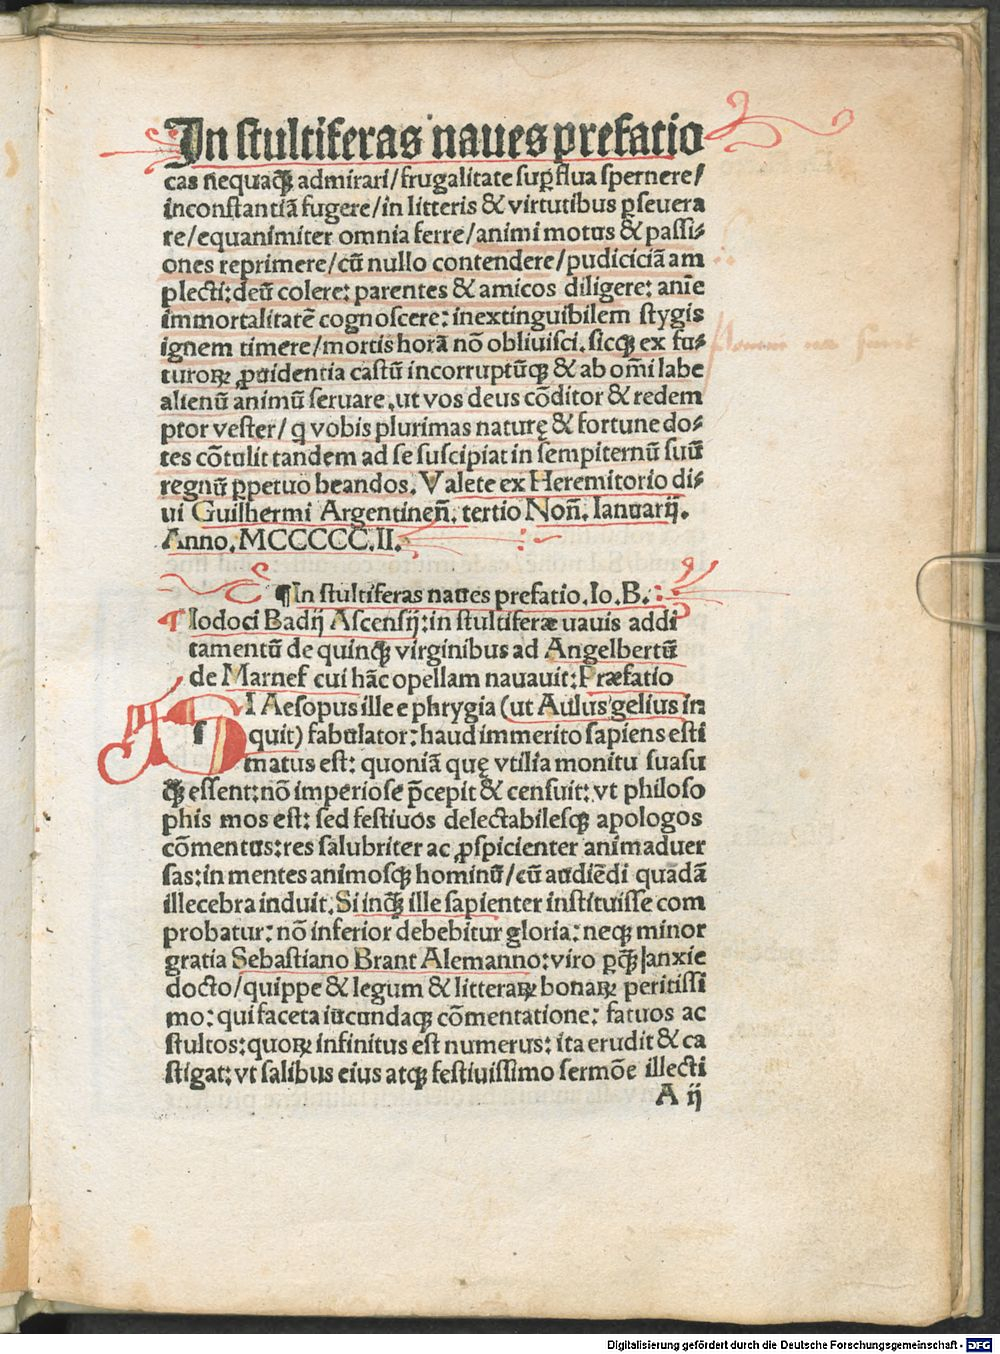 In stultiferas naues prefatio
cas nequaqꝫ admirari/frugalitate suꝑflua spernere/
inconstantiā fugere/in litteris & virtutibus ꝑseuera
re/equanimiter omnia ferre/animi motus & passi⸗
ones reprimere/cū nullo contendere/pudiciciā am
plecti:deū colere: parentes & amicos diligere: anīe
immortalitatē cognoscere: inextinguibilem stygis
ignem timere/mortis horā nō obliuisci. sicqꝫ ex fu⸗
turoꝝ ꝓuidentia castū incorruptūqꝫ & ab om̄i labe
alienū animū seruare. ut vos deus cōditor & redem
ptor vester/ q vobis plurimas naturę & fortune do⸗
tes cōtulit tandem ad se suscipiat in sempiternū suū
regnū ꝑpetuo beandos. Valete ex Heremitorio di⸗
ui Guilhermi Argentineñ. tertio Noñ. Ianuarij.
Anno. MCCCCC.II.
¶In stultiferas naues prefatio. Io. B.
¶Iodoci Badij Ascensij: in stultiferæ uauis addi
tamentū de quinqꝫ virginibus ad Angelbertū
de Marnef cui hāc opellam nauauit: Præfatio
I Aesopus ille e phrygia (ut Aulus gelius in
s quit) fabulator: haud immerito sapiens esti
matus est: quoniā quę vtilia monitu suasu
qꝫ essent: nō imperiose p̄cepit & censuit: vt philoso
phis mos est: sed festiuos delectabilesqꝫ apologos
cōmentus: res salubriter ac ꝓspicienter animaduer
sas: in mentes animosqꝫ hominū/cū audiēdi quādā
illecebra induit. Si inqꝫ ille sapienter instituisse com
probatur: nō inferior debebitur gloria: neqꝫ minor
gratia Sebastiano Brant Alemanno: viro ꝑqꝫ anxie
docto/quippe & legum & litteraꝝ bonaꝝ peritissi
mo: qui faceta iucundaqꝫ cōmentatione: fatuos ac
stultos: quoꝝ infinitus est numerus: ita erudit & ca
stigat: vt salibus eius atqꝫ festiuissimo sermōe illecti
A ij
Digitalisierung gefördert durch die Deutsche Forschungsgemeinschaft - DFG